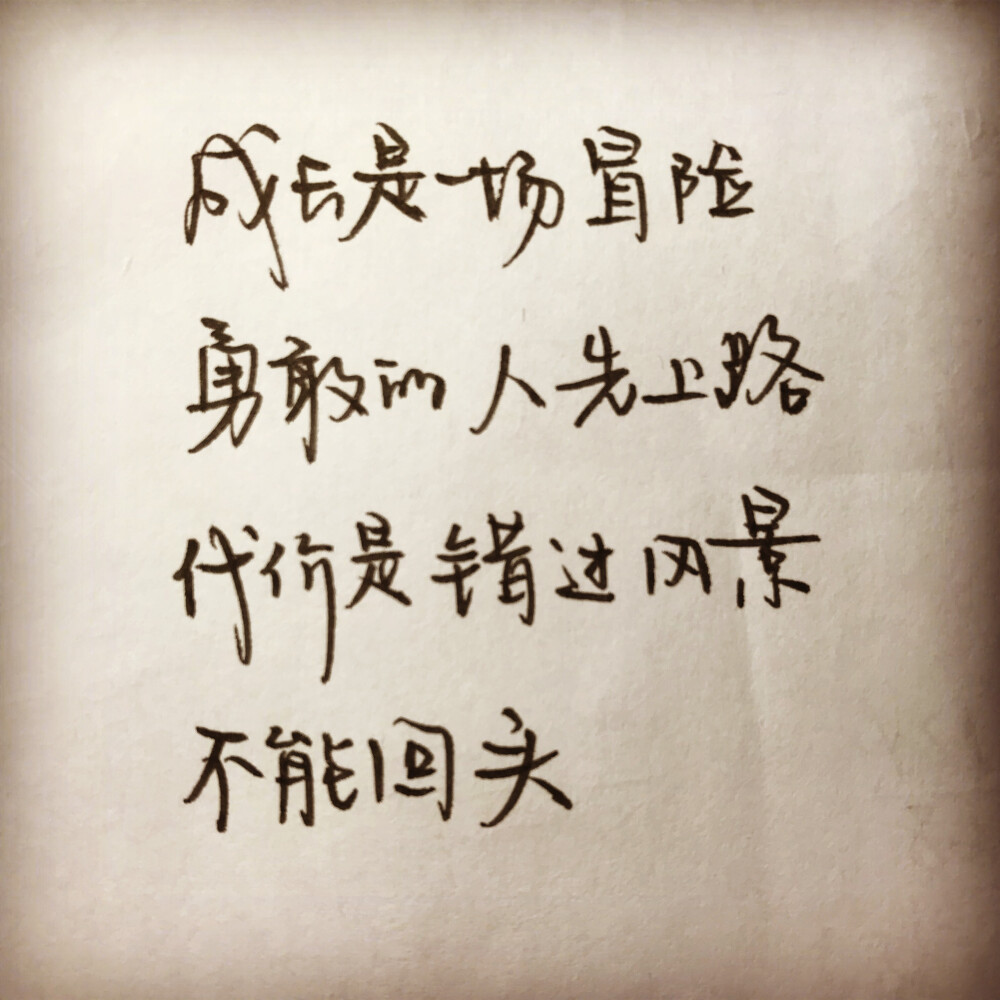 成长是一场冒险
勇敢的人先上路
代价是错过风景
不能回头